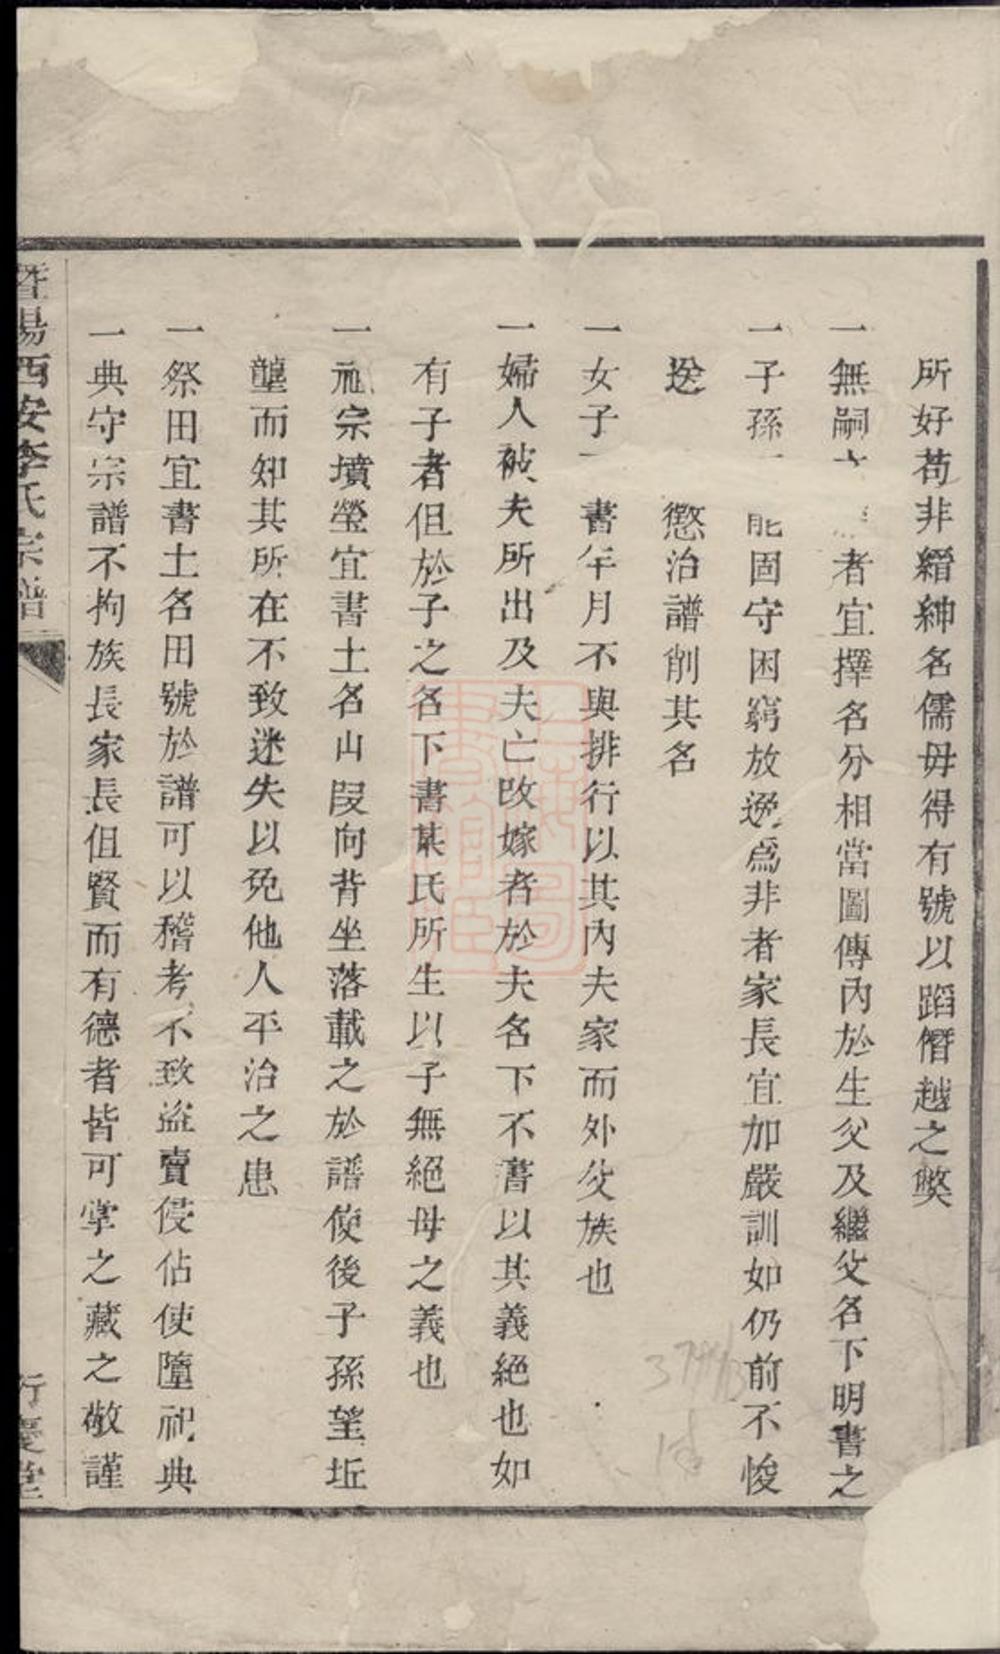 所好苟非縉紳名儒毋得有號以蹈僭越之獘
一無嗣 者宜擇名分相當圖傳內於生父及繼父名下明書之
一子孫 能固守困窮放逸爲非者家長宜加嚴訓如仍前不悛
送 懲治譜削其名
一女子 書年月不與排行以其內夫家而外父族也
一婦人被夫所出及夫亡改嫁者於夫名下不書以其義絕也如
有子者但於子之名下書某氏所生以子無絕母之義也
一祖宗墳塋宜書土名山叚向背坐落載之於譜使後子孫望坵
壠而知其所在不致迷失以免他人平治之患
一祭田宜書土名田號於譜可以稽考不致盜賣侵佔使墮祀典
一典守宗譜不拘族長家長但賢而有德者皆可掌之藏之敬謹
暨陽西安李氏宗譜
行慶堂